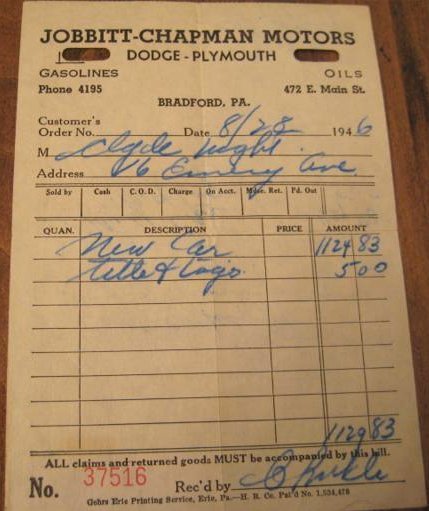 JOBBITT-CHAPMAN MOTORS
DODGE - PLYMOUTH
GASOLINES OILS
Phone 4195 472 E. Main St.
BRADFORD, PA.
Customer's
Order No. Date 8/28 1946
M Clyde Wight
Address 16 Emery Ave.
Sold by Cash C.O.D. Charge On Acct. Mdse. Ret. Pd. Out
QUAN. DESCRIPTION PRICE AMOUNT
New Car 1124 83
title & tags 5 00
1129 83
ALL claims and returned goods MUST be accompanied by this bill.
No. 37516 Rec'd by
Gohrs Erie Printing Service, Erie, Pa.—H. R. Co. Pat'd No. 1,534,476